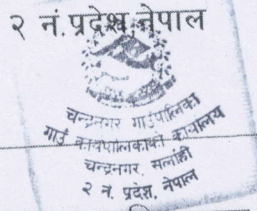 २ नं. प्रदेश, नेपाल
चन्द्रनगर गाउँपालिका
गाउँ कार्यपालिकाको कार्यालय
चन्द्रनगर, सर्लाही
२ नं. प्रदेश, नेपाल